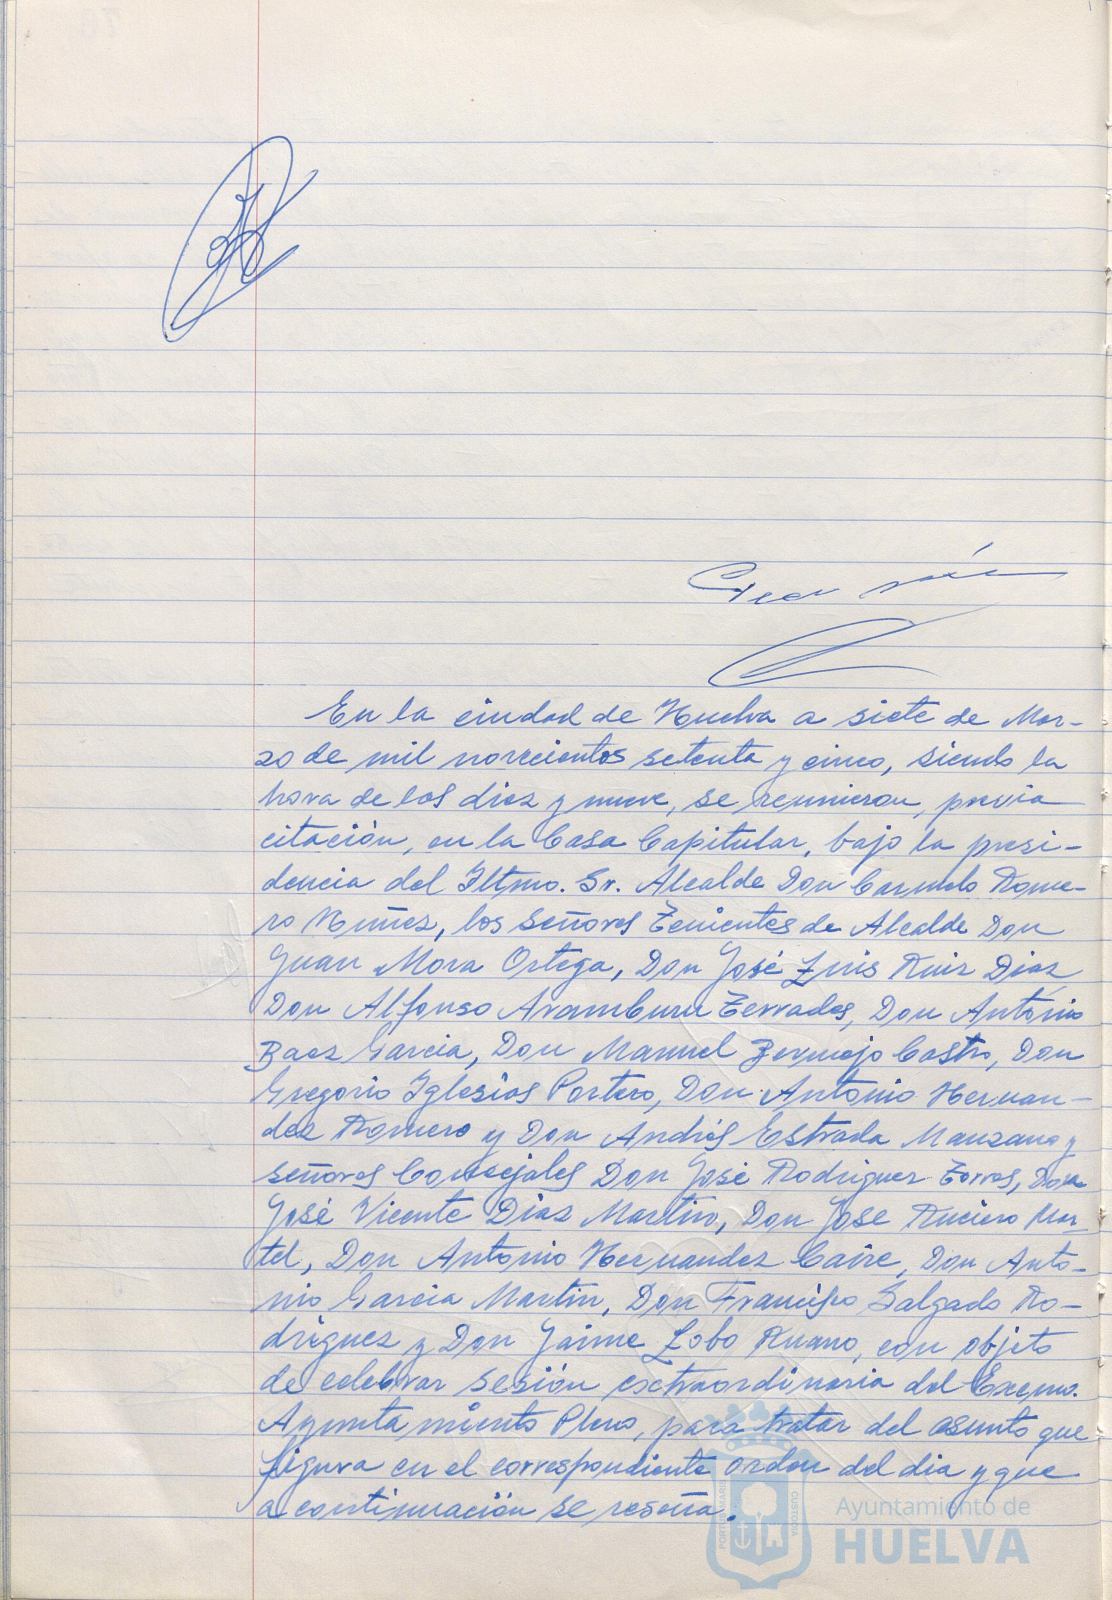 En la ciudad de Huelva a siete de Mar-
zo de mil novecientos setenta y cinco, siendo la
hora de las diez y nueve, se reunieron, previa
citación, en la Casa Capitular, bajo la presi-
dencia del Iltmo. Sr. Alcalde Don Carmelo Rome-
ro Núñez, los señores Tenientes de Alcalde Don
Juan Mora Ortega, Don José Luis Ruiz Diaz
Don Alfonso Aramburu Terrades, Don Antonio
Baez Garcia, Don Manuel Bermejo Castro, Don
Gregorio Iglesias Portero, Don Antonio Hernan-
dez Romero y Don Andrés Estrada Manzano y
señores Concejales Don José Rodriguez Torres, Don
José Vicente Diaz Martin, Don José Ruciero Mar
tel, Don Antonio Hernandez Caire, Don Anto-
nio Garcia Martin, Don Francisco Salgado Ro-
driguez y Don Jaime Lobo Ruano, con objeto
de celebrar sesión extraordinaria del Excmo.
Ayuntamiento Pleno, para tratar del asunto que
figura en el correspondiente orden del dia y que
a continuación se reseña.
PORTUS MARIS CUSTODIA
Ayuntamiento de
HUELVA